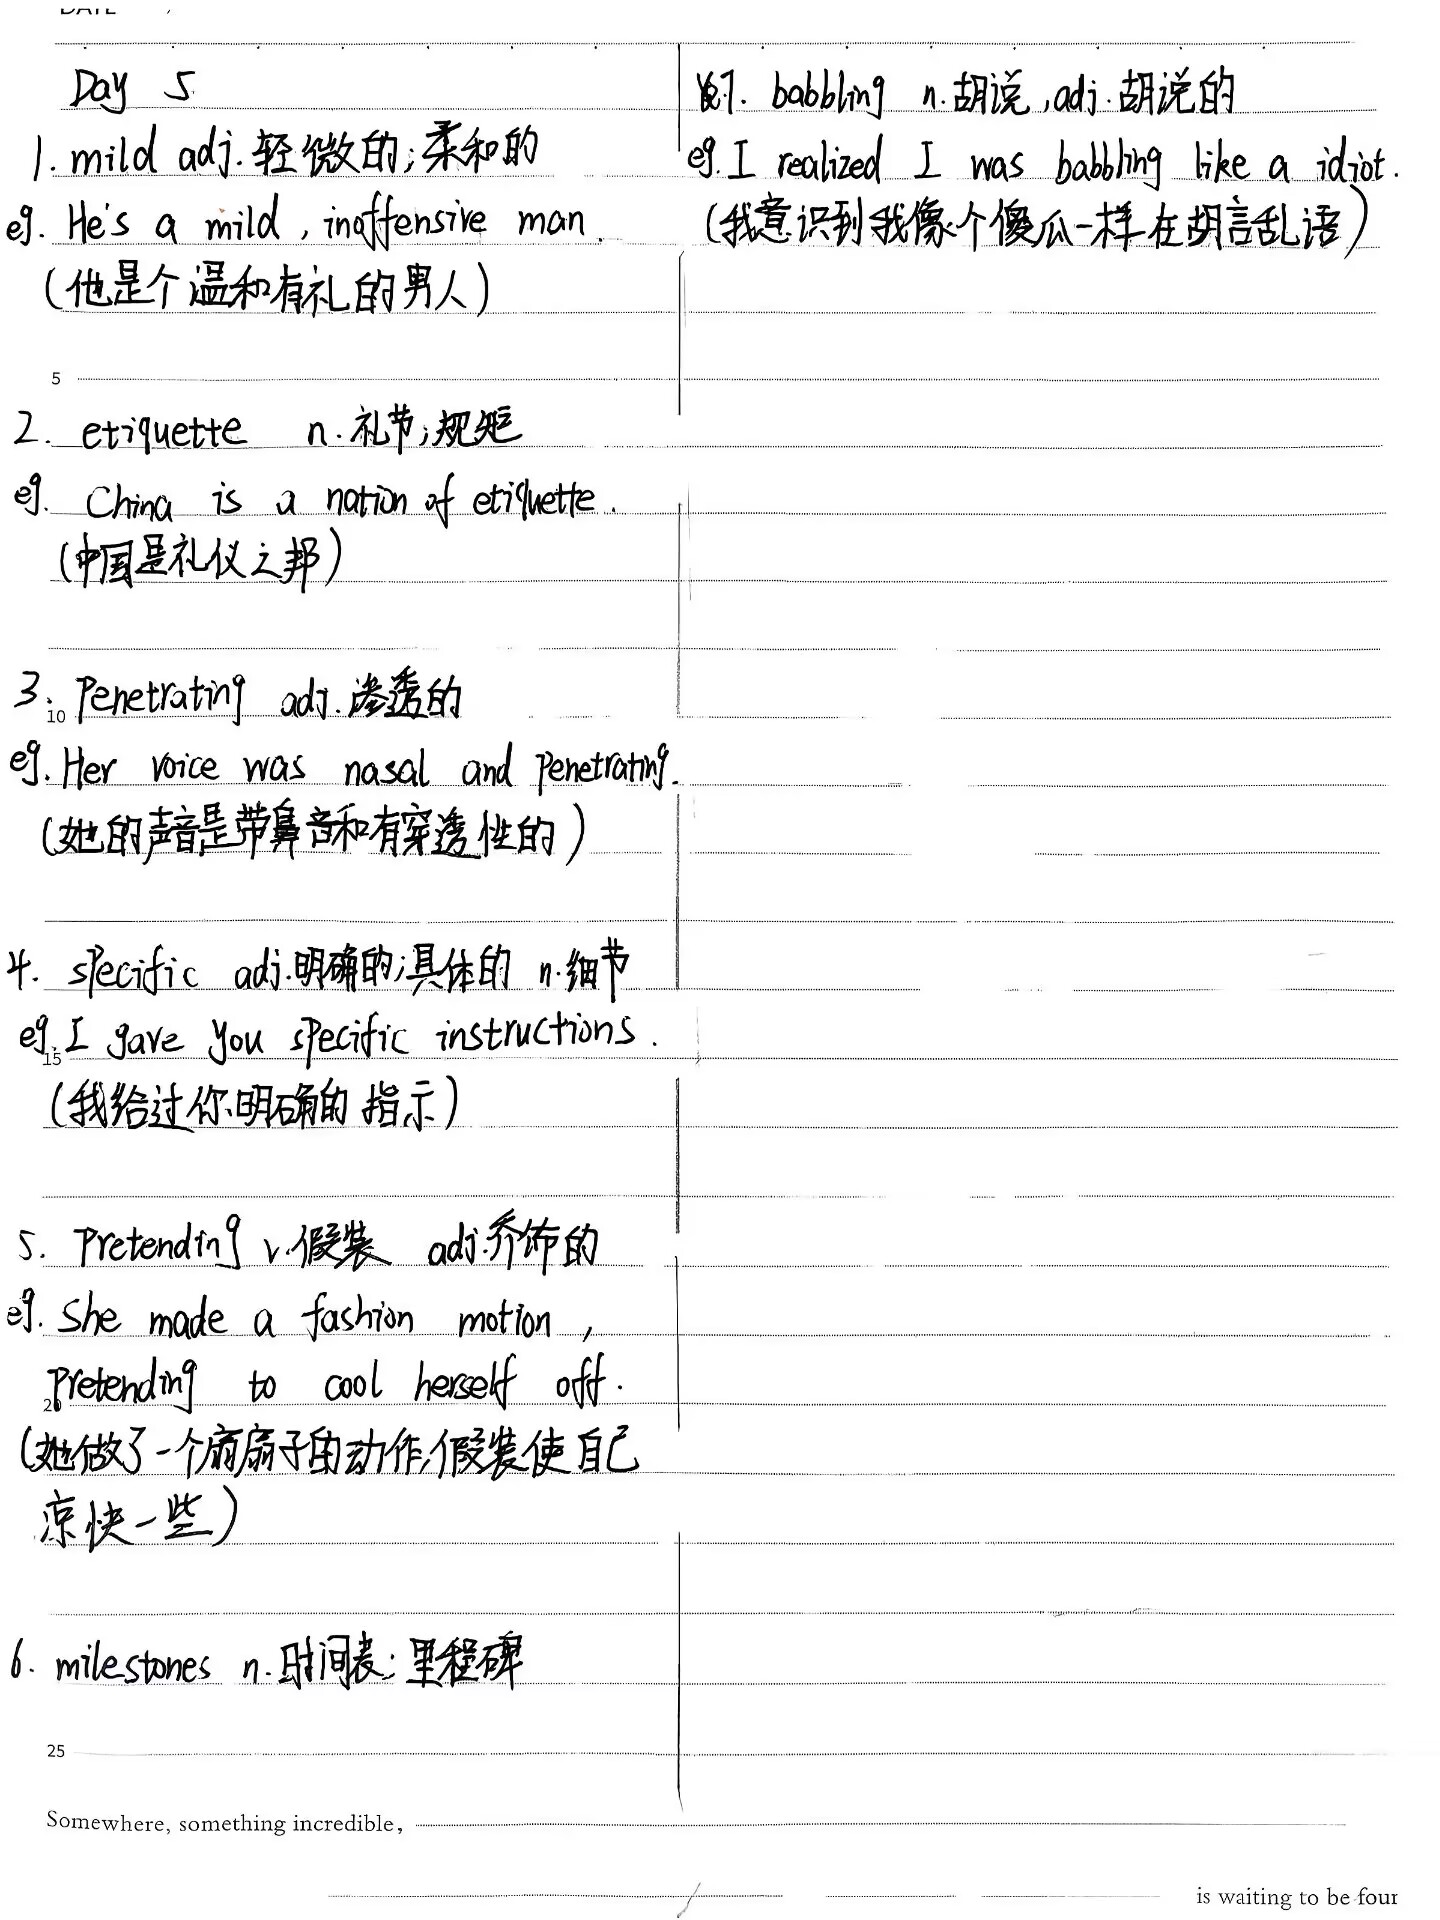 Day 5
1. mild adj.轻微的;柔和的
eg. He's a mild, inoffensive man.
(他是个温和有礼的男人)
5
2. etiquette n.礼节;规矩
eg. China is a nation of etiquette.
(中国是礼仪之邦)
3. Penetrating adj.渗透的
10
eg. Her voice was nasal and penetrating.
(她的声音是带鼻音和有穿透性的)
4. specific adj.明确的;具体的 n.细节
eg. I gave you specific instructions.
15
(我给过你明确的指示)
5. Pretending v.假装 adj.矫饰的
eg. She made a fashion motion,
pretending to cool herself off.
20
(她做了一个扇扇子的动作,假装使自己
凉快一些)
6. milestones n.时间表;里程碑
25
7. babbling n.胡说,adj.胡说的
eg. I realized I was babbling like a idiot.
(我意识到我像个傻瓜一样在胡言乱语)
Somewhere, something incredible,
is waiting to be